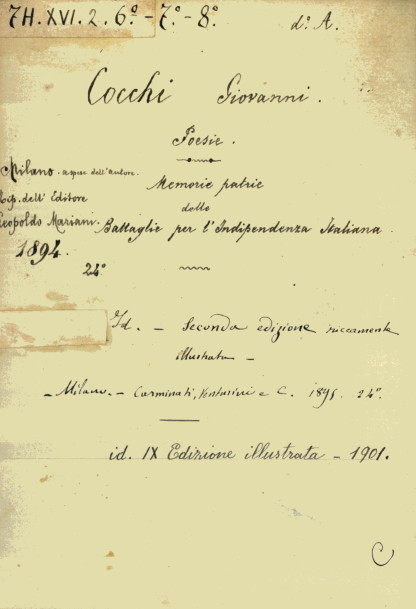 7H. XVI. 2. 6º - 7º - 8º d.º A.
Cocchi Giovanni.
Poesie.
Milano. a spese dell'Autore.
Memorie patrie
Tip. dell' Editore
delle
Leopoldo Mariani.
Battaglie per l'Indipendenza Italiana.
1894.
24º
Id. - Seconda edizione riccamente
illustrata -
- Milano. - Carminati, Venturini e C. 1895. 24º.
id. IX Edizione illustrata - 1901.
C